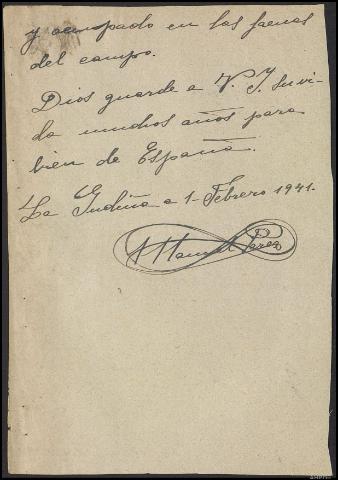 y ocupado en las faenas
del campo.
Dios guarde a V. I. su vi-
da muchos años para
bien de España.
La Gudiña a 1- Febrero 1941.
Manuel Perez